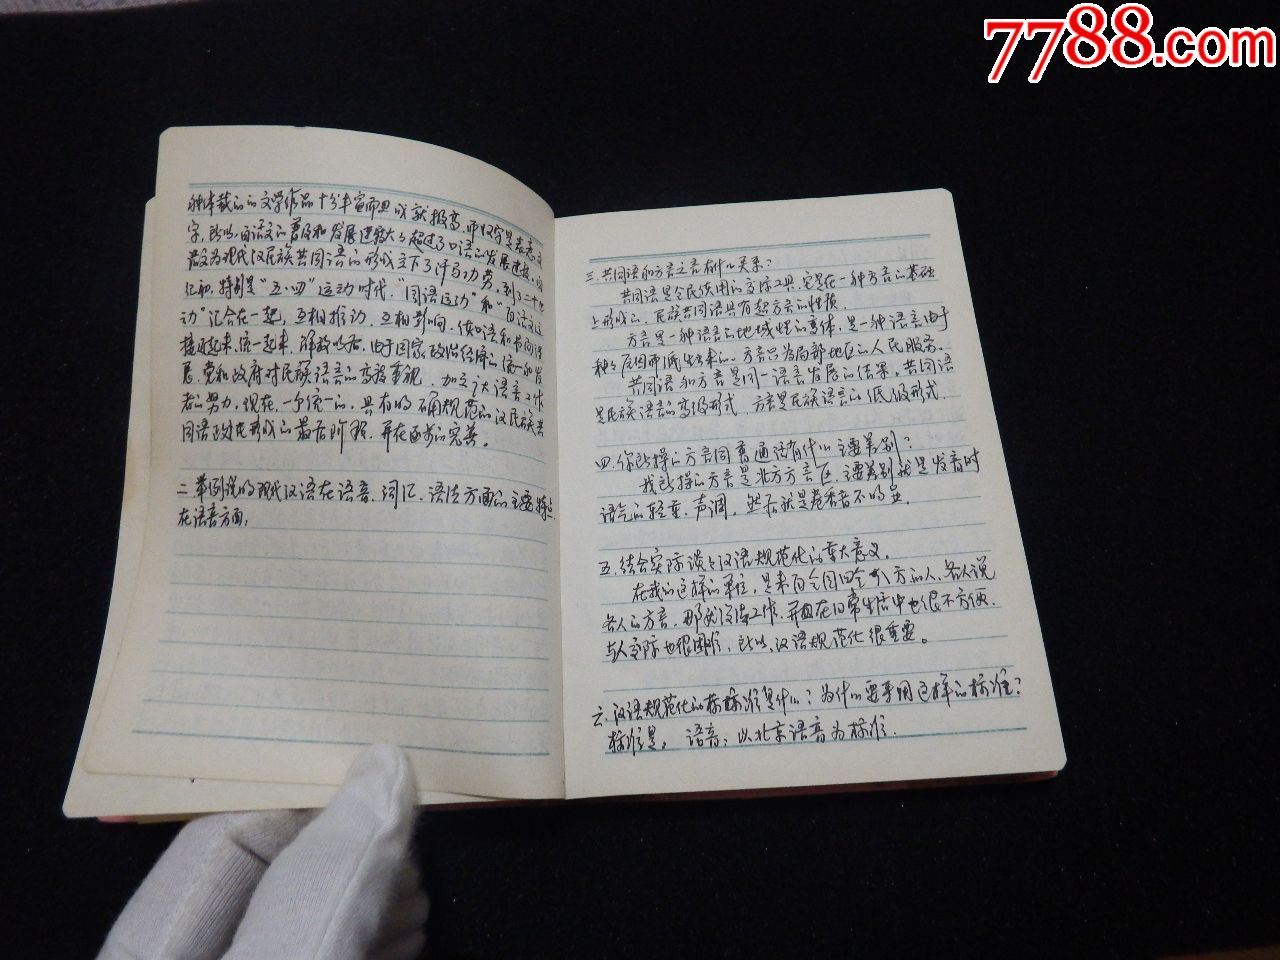 7788.com
种体裁的的文学作品十分丰富而且成就报高，而汉字是表意文
字，所以，白语文的普及和发展速较大大超过了口语的发展速度，
都为现代汉民族共同语的形成立下了汗马功劳，到了二十世
纪初，特别是“五·四”运动时代，“国语运动”和“白话文运
动”汇合在一起，互相推动，互相影响，使口语和书同语
接近起来、统一起来，解放以后，由于国家政治经济的统一和发
展，党和政府对民族语言的高度重视，加之广大语言工作
者的努力，现在，一个统一的，具有明确规范的汉民族共
同语政在形成的最后阶段，并在逐步的完善。
二、举例说明现代汉语在语音、词汇、语法方面的主要特点
在语音方面：
三、共同语和方言之言有什么关系？
共同语是全民族用的交际工具，它是在一种方言的基础
上形成的，民族共同语具有超方言的性质。
方言是一种语言的地域性的变体，是一种语言由于
种种原因而派生出来的，方言只为局部地区的人民服务。
共同语和方言是同一语言发展的结果，共同语
是民族语言的高级形式，方言是民族语言的低级形式。
四、你所操的方言同普通话有什么主要差别？
我所操的方言是北方方言区，主要差别就是发音时
语气的轻重、声调，然后就是卷舌音不明显。
五、结合实际谈谈汉语规范化的重大意义。
在我们这样的单位，是来自全国四面八方的人，各人说
各人的方言，那就没法工作，并且在日常生活中也很不方便，
与人交际也很困难，所以，汉语规范化很重要。
六、汉语规范化的标标准是什么？为什么要采用这样的标准？
标准是：语音：以北京语音为标准，